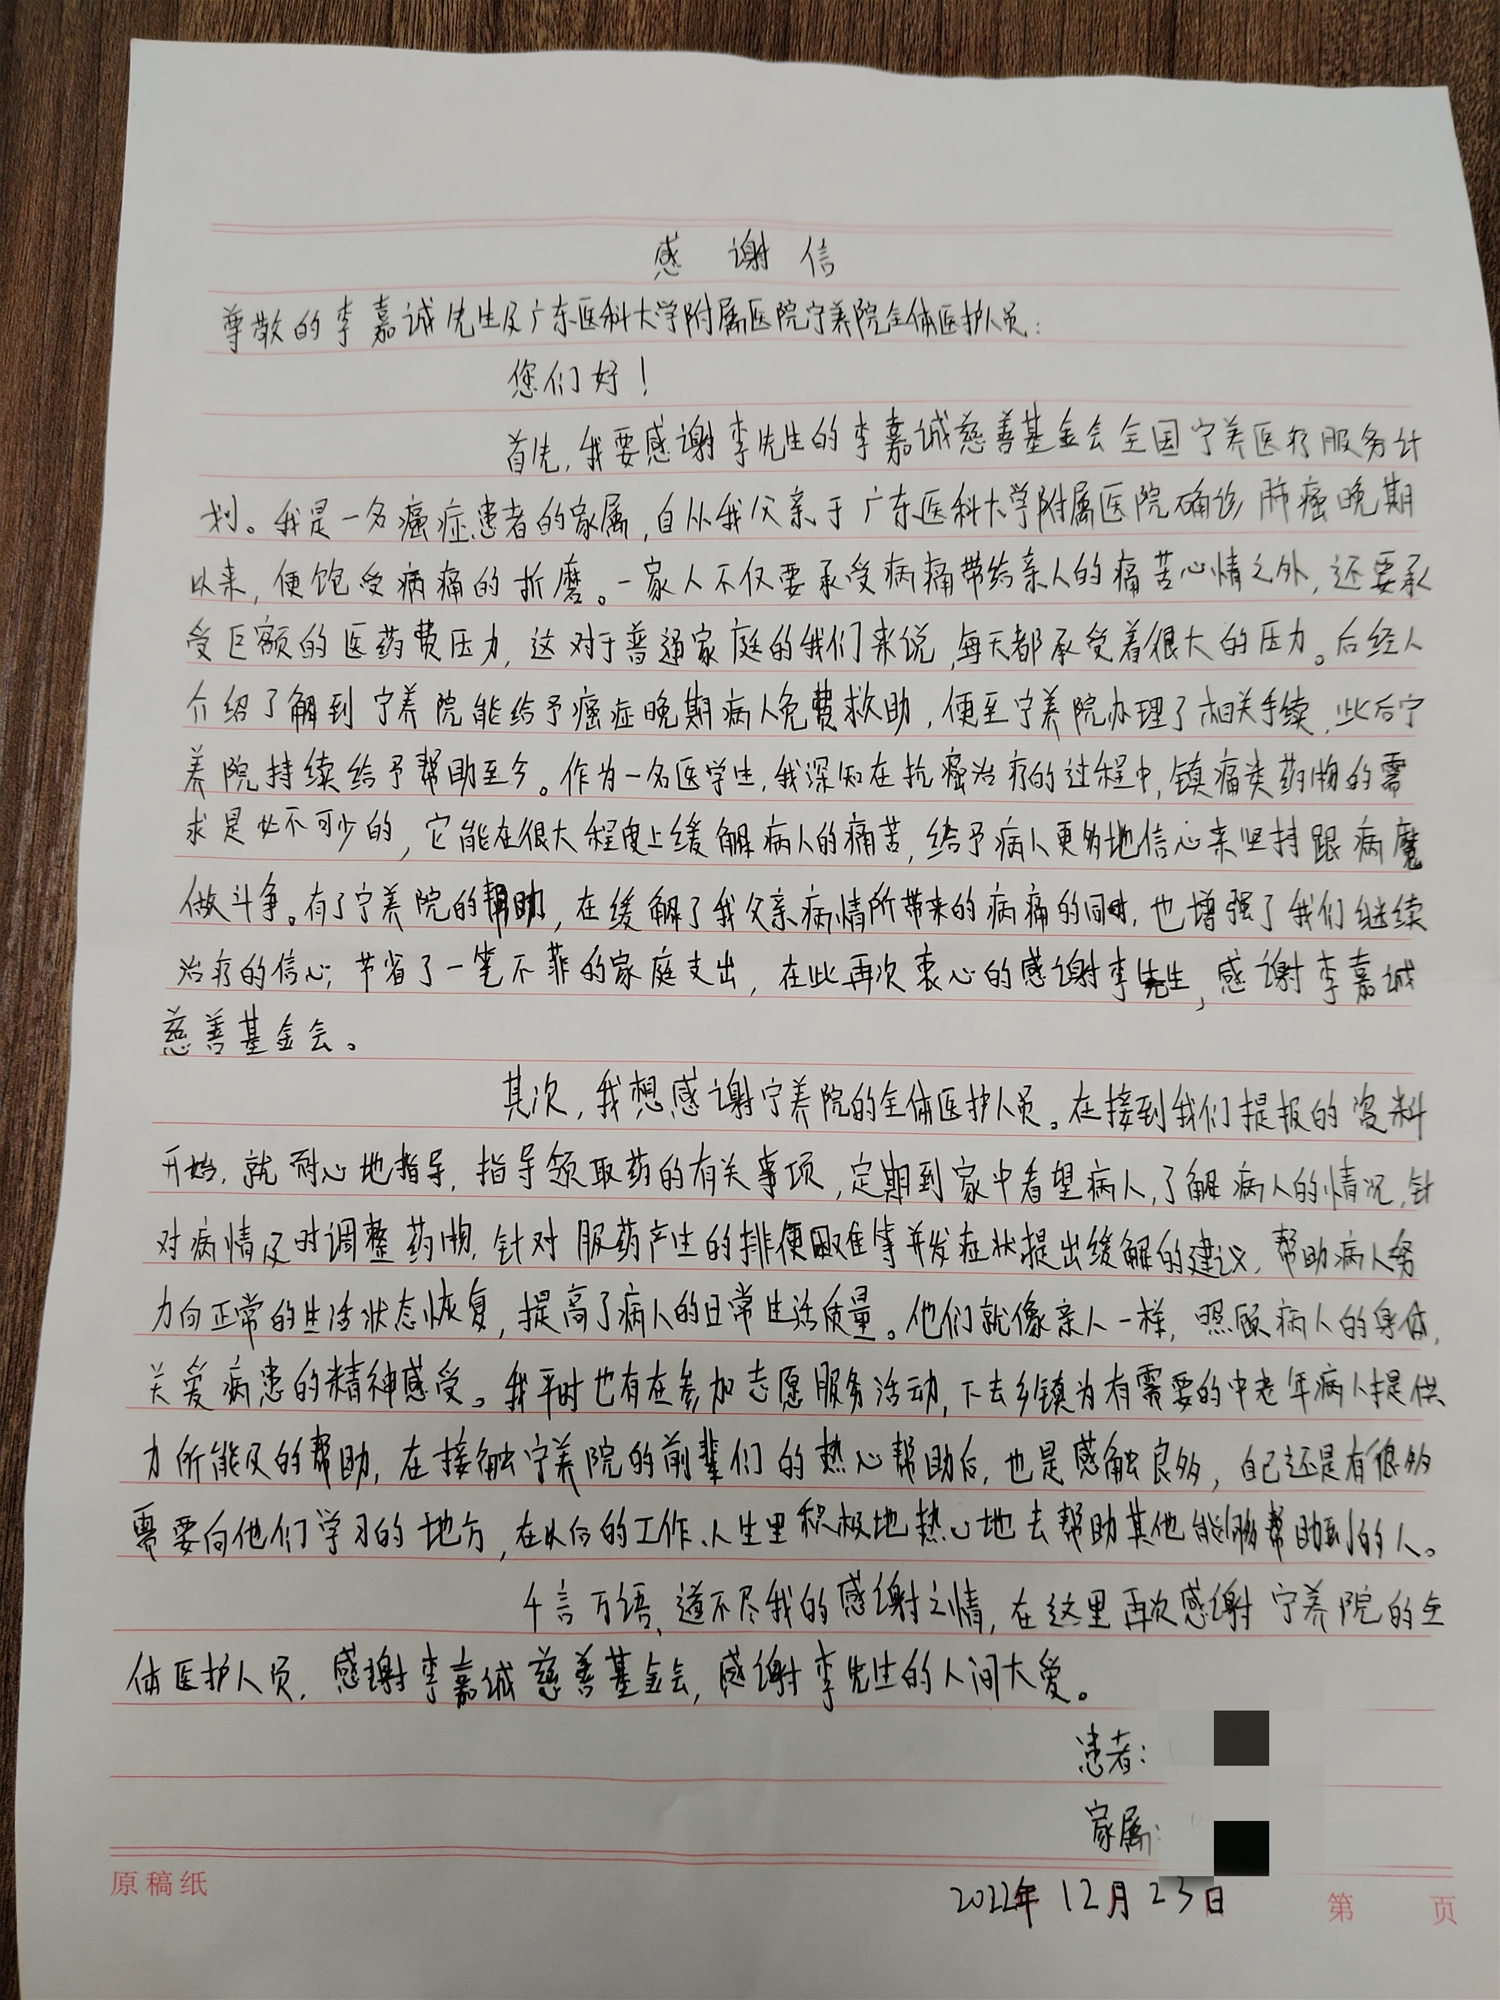 感谢信
尊敬的李嘉诚先生及广东医科大学附属医院宁养院全体医护人员：
您们好！
首先，我要感谢李先生的李嘉诚慈善基金会全国宁养医疗服务计
划。我是一名癌症患者的家属，自从我父亲于广东医科大学附属医院确诊肺癌晚期
以来，便饱受病痛的折磨。一家人不仅要承受病痛带给亲人的痛苦心情之外，还要承
受巨额的医药费压力，这对于普通家庭的我们来说，每天都承受着很大的压力。后经人
介绍了解到宁养院能给予癌症晚期病人免费救助，便至宁养院办理了相关手续，此后宁
养院持续给予帮助至今。作为一名医学生，我深知在抗癌治疗的过程中，镇痛类药物的需
求是必不可少的，它能在很大程度上缓解病人的痛苦，给予病人更多地信心来坚持跟病魔
做斗争。有了宁养院的帮助，在缓解了我父亲病情所带来的病痛的同时，也增强了我们继续
治疗的信心；节省了一笔不菲的家庭支出，在此再次衷心的感谢李先生，感谢李嘉诚
慈善基金会。
其次，我想感谢宁养院的全体医护人员。在接到我们提报的资料
开始，就耐心地指导，指导领取药的有关事项，定期到家中看望病人，了解病人的情况，针
对病情及时调整药物，针对服药产生的排便困难等并发症状提出缓解的建议，帮助病人努
力向正常的生活状态恢复，提高了病人的日常生活质量。他们就像亲人一样，照顾病人的身体，
关爱病患的精神感受。我平时也有在参加志愿服务活动，下去乡镇为有需要的中老年病人提供
力所能及的帮助，在接触宁养院的前辈们的热心帮助后，也是感触良多，自己还是有很多
需要向他们学习的地方，在以后的工作、人生里积极地热心地去帮助其他能够帮助到的人。
千言万语，道不尽我的感谢之情，在这里再次感谢宁养院的全
体医护人员，感谢李嘉诚慈善基金会，感谢李先生的人间大爱。
患者：
家属：
2022年12月23日
原稿纸 第 页